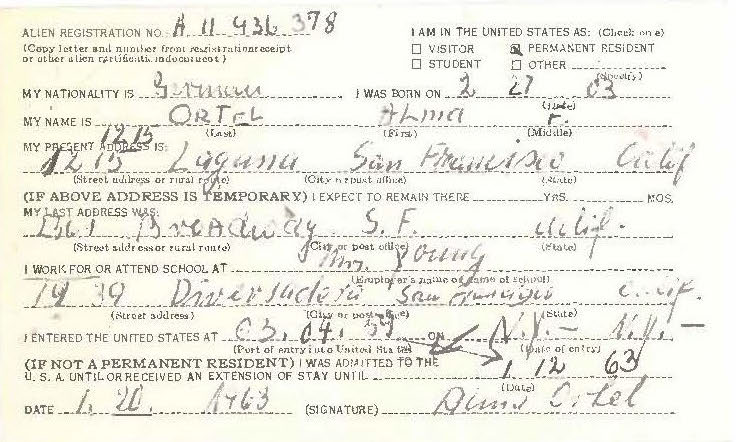 ALIEN REGISTRATION NO. A 11 936 378
I AM IN THE UNITED STATES AS: (Check one)
(Copy letter and number from registration receipt
or other alien certification document)
☐ VISITOR ☒ PERMANENT RESIDENT
☐ STUDENT ☐ OTHER
(Specify)
MY NATIONALITY IS German I WAS BORN ON 2 27 03
(Date)
MY NAME IS ORTEL ALMA F.
(Last) (First) (Middle)
1215
MY PRESENT ADDRESS IS:
1215 Laguna San Francisco Calif
(Street address or rural route) (City or post office) (State)
(IF ABOVE ADDRESS IS TEMPORARY) I EXPECT TO REMAIN THERE YRS. MOS.
MY LAST ADDRESS WAS:
Broadway S.F. Calif.
(Street address or rural route) (City or post office) (State)
Mrs. Young
I WORK FOR OR ATTEND SCHOOL AT
(Employer's name or name of school)
1939 San Francisco Calif.
(Street address) (City or post office) (State)
I ENTERED THE UNITED STATES AT 03. 04. 59 ON N.Y. - N.Y. -
(Port of entry into United States) (Date of entry)
(IF NOT A PERMANENT RESIDENT) I WAS ADMITTED TO THE
U.S.A. UNTIL OR RECEIVED AN EXTENSION OF STAY UNTIL 1 12 63
(Date)
DATE 1. 20. 1963 (SIGNATURE) Alma Ortel